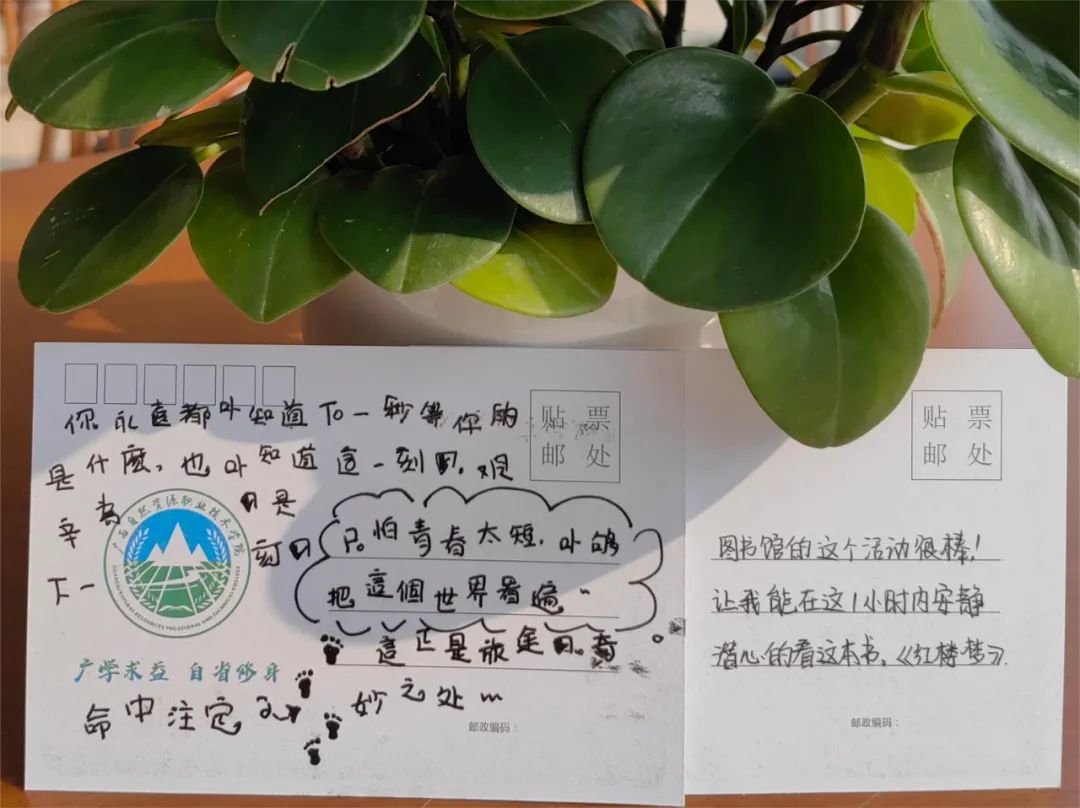 你永远都卟知道下一秒等你的
是什麼,也卟知道這一刻
广西自然资源职业技术学院
GUANGXI NATURAL RESOURCES VOCATIONAL AND TECHNICAL COLLEGE
下一
刻
广学求益 自省修身
命中注定
只怕青春太短,卟够
把這個世界看遍~
這正是旅途的奇
妙之处~
贴 票
邮 处
邮政编码:
贴 票
邮 处
图书馆的这个活动很棒!
让我能在这1小时内安静
潜心的看这本书,《红楼梦》.
邮政编码: